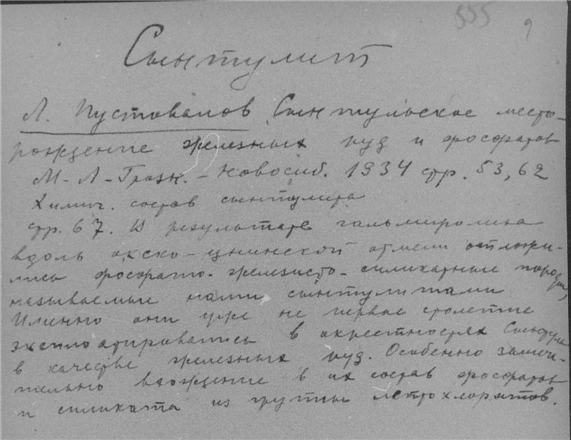 555 9
Сынтулит
Л. Пустовалов Сынтульское место-
рождение железных руд и фосфатов
М.-Л-Грозн.-Новосиб. 1934 стр. 53, 62
Химич. состав сынтулита
стр. 67. В результате гальмиролиза
вдоль окско-цнинской отмели отложи-
лись фосфато-железисто-силикатные породы,
называемые нами сынтулитами
Именно они уже не первое столетие
эксплоатировались в окрестностях Сынтула
в качестве железных руд. Особенно замеча-
тельно вхождение в их состав фосфатов
и силиката из группы лептохлоритов.